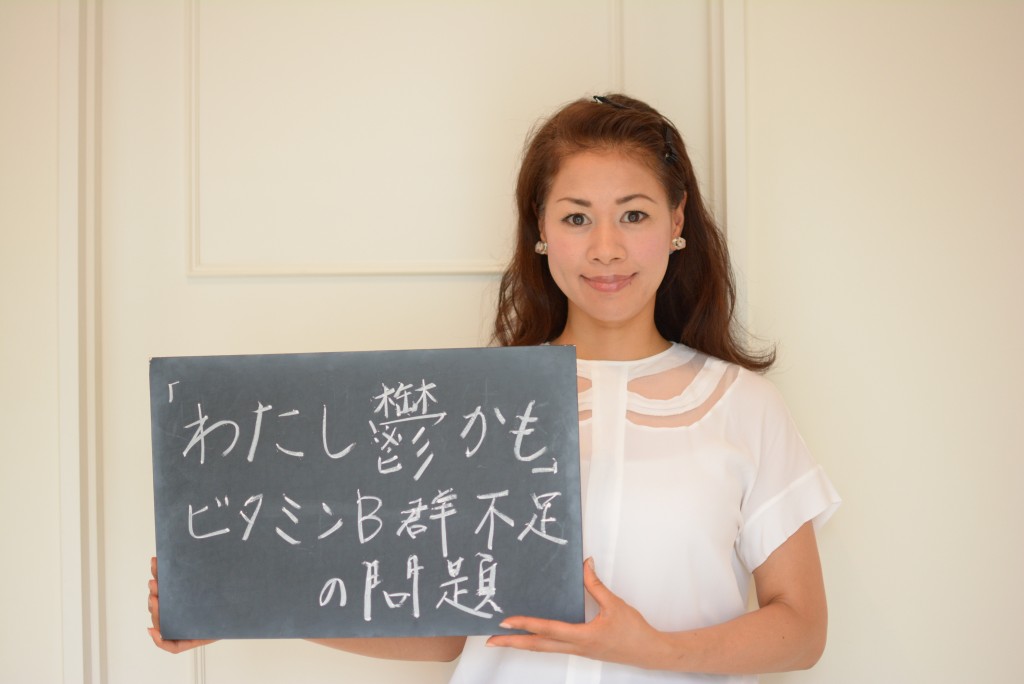 「わたし鬱かも」
ビタミンB群不足
の問題